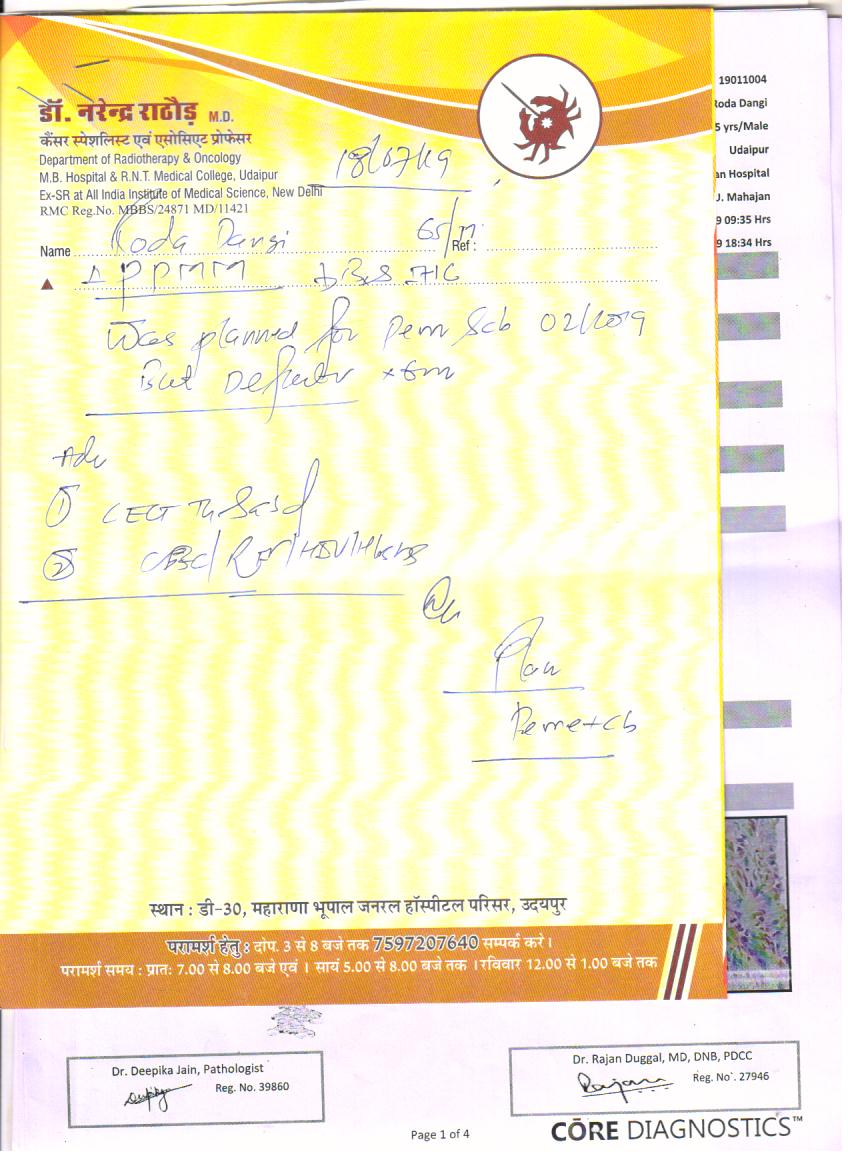 डॉ. नरेन्द्र राठौड़ M.D.
कैंसर स्पेशलिस्ट एवं एसोसिएट प्रोफेसर
Department of Radiotherapy & Oncology
M.B. Hospital & R.N.T. Medical College, Udaipur
Ex-SR at All India Institute of Medical Science, New Delhi
RMC Reg.No. MBBS/24871 MD/11421
18/07/19
Name Roda Dangi 65/M Ref :
PPMM
Was planned for Pem 02/2019
But Defaulter x 6m
Adv
① CECT
② CBC/RFT/HIV/HbsAg
Plan
Peme+Cb
स्थान : डी-30, महाराणा भूपाल जनरल हॉस्पीटल परिसर, उदयपुर
परामर्श हेतु : दोप. 3 से 8 बजे तक 7597207640 सम्पर्क करे ।
परामर्श समय : प्रातः 7.00 से 8.00 बजे एवं । सायं 5.00 से 8.00 बजे तक । रविवार 12.00 से 1.00 बजे तक
19011004
Roda Dangi
5 yrs/Male
Udaipur
an Hospital
J. Mahajan
9 09:35 Hrs
9 18:34 Hrs
Dr. Deepika Jain, Pathologist
Reg. No. 39860
Dr. Rajan Duggal, MD, DNB, PDCC
Reg. No. 27946
Page 1 of 4
CŌRE DIAGNOSTICS™